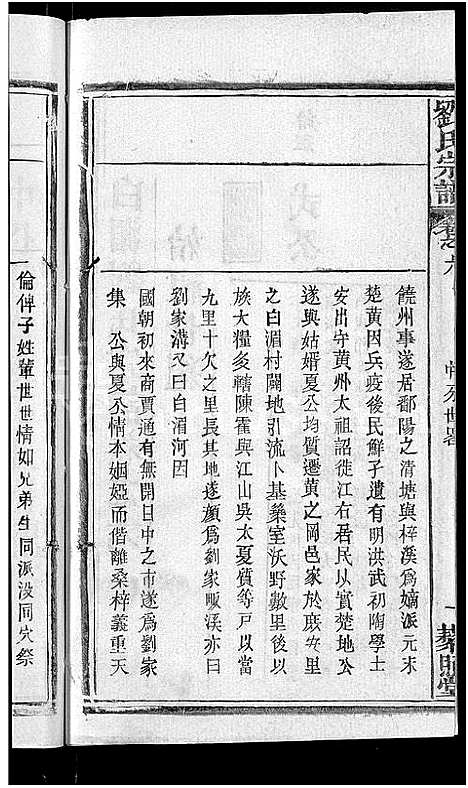 劉氏宗譜
卷之六
饒州事遂居鄱陽之清塘與梓溪爲嫡派元末
楚黃因兵疫後民鮮孑遺有明洪武初陶學士
安出守黃州太祖詔徙江右居民以實楚地公
遂與姑婿夏公均質遷黃之岡邑家於庶安里
之白湄村闢地引流卜基築室沃野數里後以
族大糧多轄陳霍與江山吳太夏質等戶以當
九里十欠之里長其地遂顏爲劉家畈溪亦曰
劉家溝又曰白湄河因
國朝初來商賈通有無開日中之市遂爲劉家
集 公與夏公情本姻婭而偕離桑梓義重天
倫俾子姓輩世世情如兄弟生同派没同穴祭